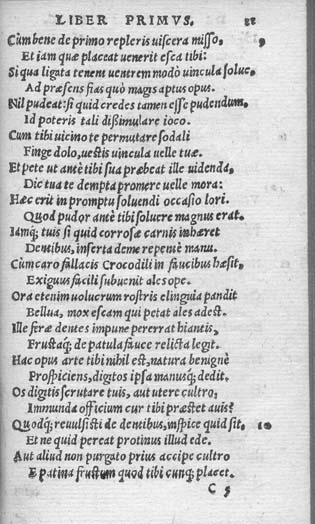 LIBER PRIMVS.
Cùm bene de primo repleris uiscera misso, 9
Et iam quæ placeat uenerit esca tibi:
Si qua ligata tenent uentrem modò uincula solue,
Ad præsens fias quò magis aptus opus.
Nil pudeat: si quid credes tamen esse pudendum,
Id poteris tali dißimulare ioco.
Cum tibi uicino te permutare sodali
Finge dolo, uestis uincula uelle tuæ.
Et pete ut antè tibi sua præbeat ille uidenda,
Dic tua te dempta promere uelle mora:
Hæc erit in promptu soluendi occasio lori.
Quod pudor antè tibi soluere magnus erat.
Iamq́; tuis si quid corrosæ carnis inhæret
Dentibus, inserta deme repentè manu.
Cùm caro fallacis Crocodili in faucibus hæsit,
Exiguus facili subuenit ales ope.
Ora etenim uolucrum rostris elinguia pandit
Bellua, mox escam qui petat ales adest.
Ille feræ dentes impune pererrat hiantis,
Frustaq́; de patula fauce relicta legit.
Hac opus arte tibi nihil est, natura benignè
Prospiciens, digitos ipsa manusq́; dedit.
Os digitis scrutare tuis, aut utere cultro,
Immunda officium cur tibi præstet auis?
Quodq́; reuulsisti de dentibus, inspice quid sit. 10
Et ne quid pereat protinus illud ede.
Aut aliud non purgato prius accipe cultro
E patina frustum quod tibi cunq; placet.
C 5